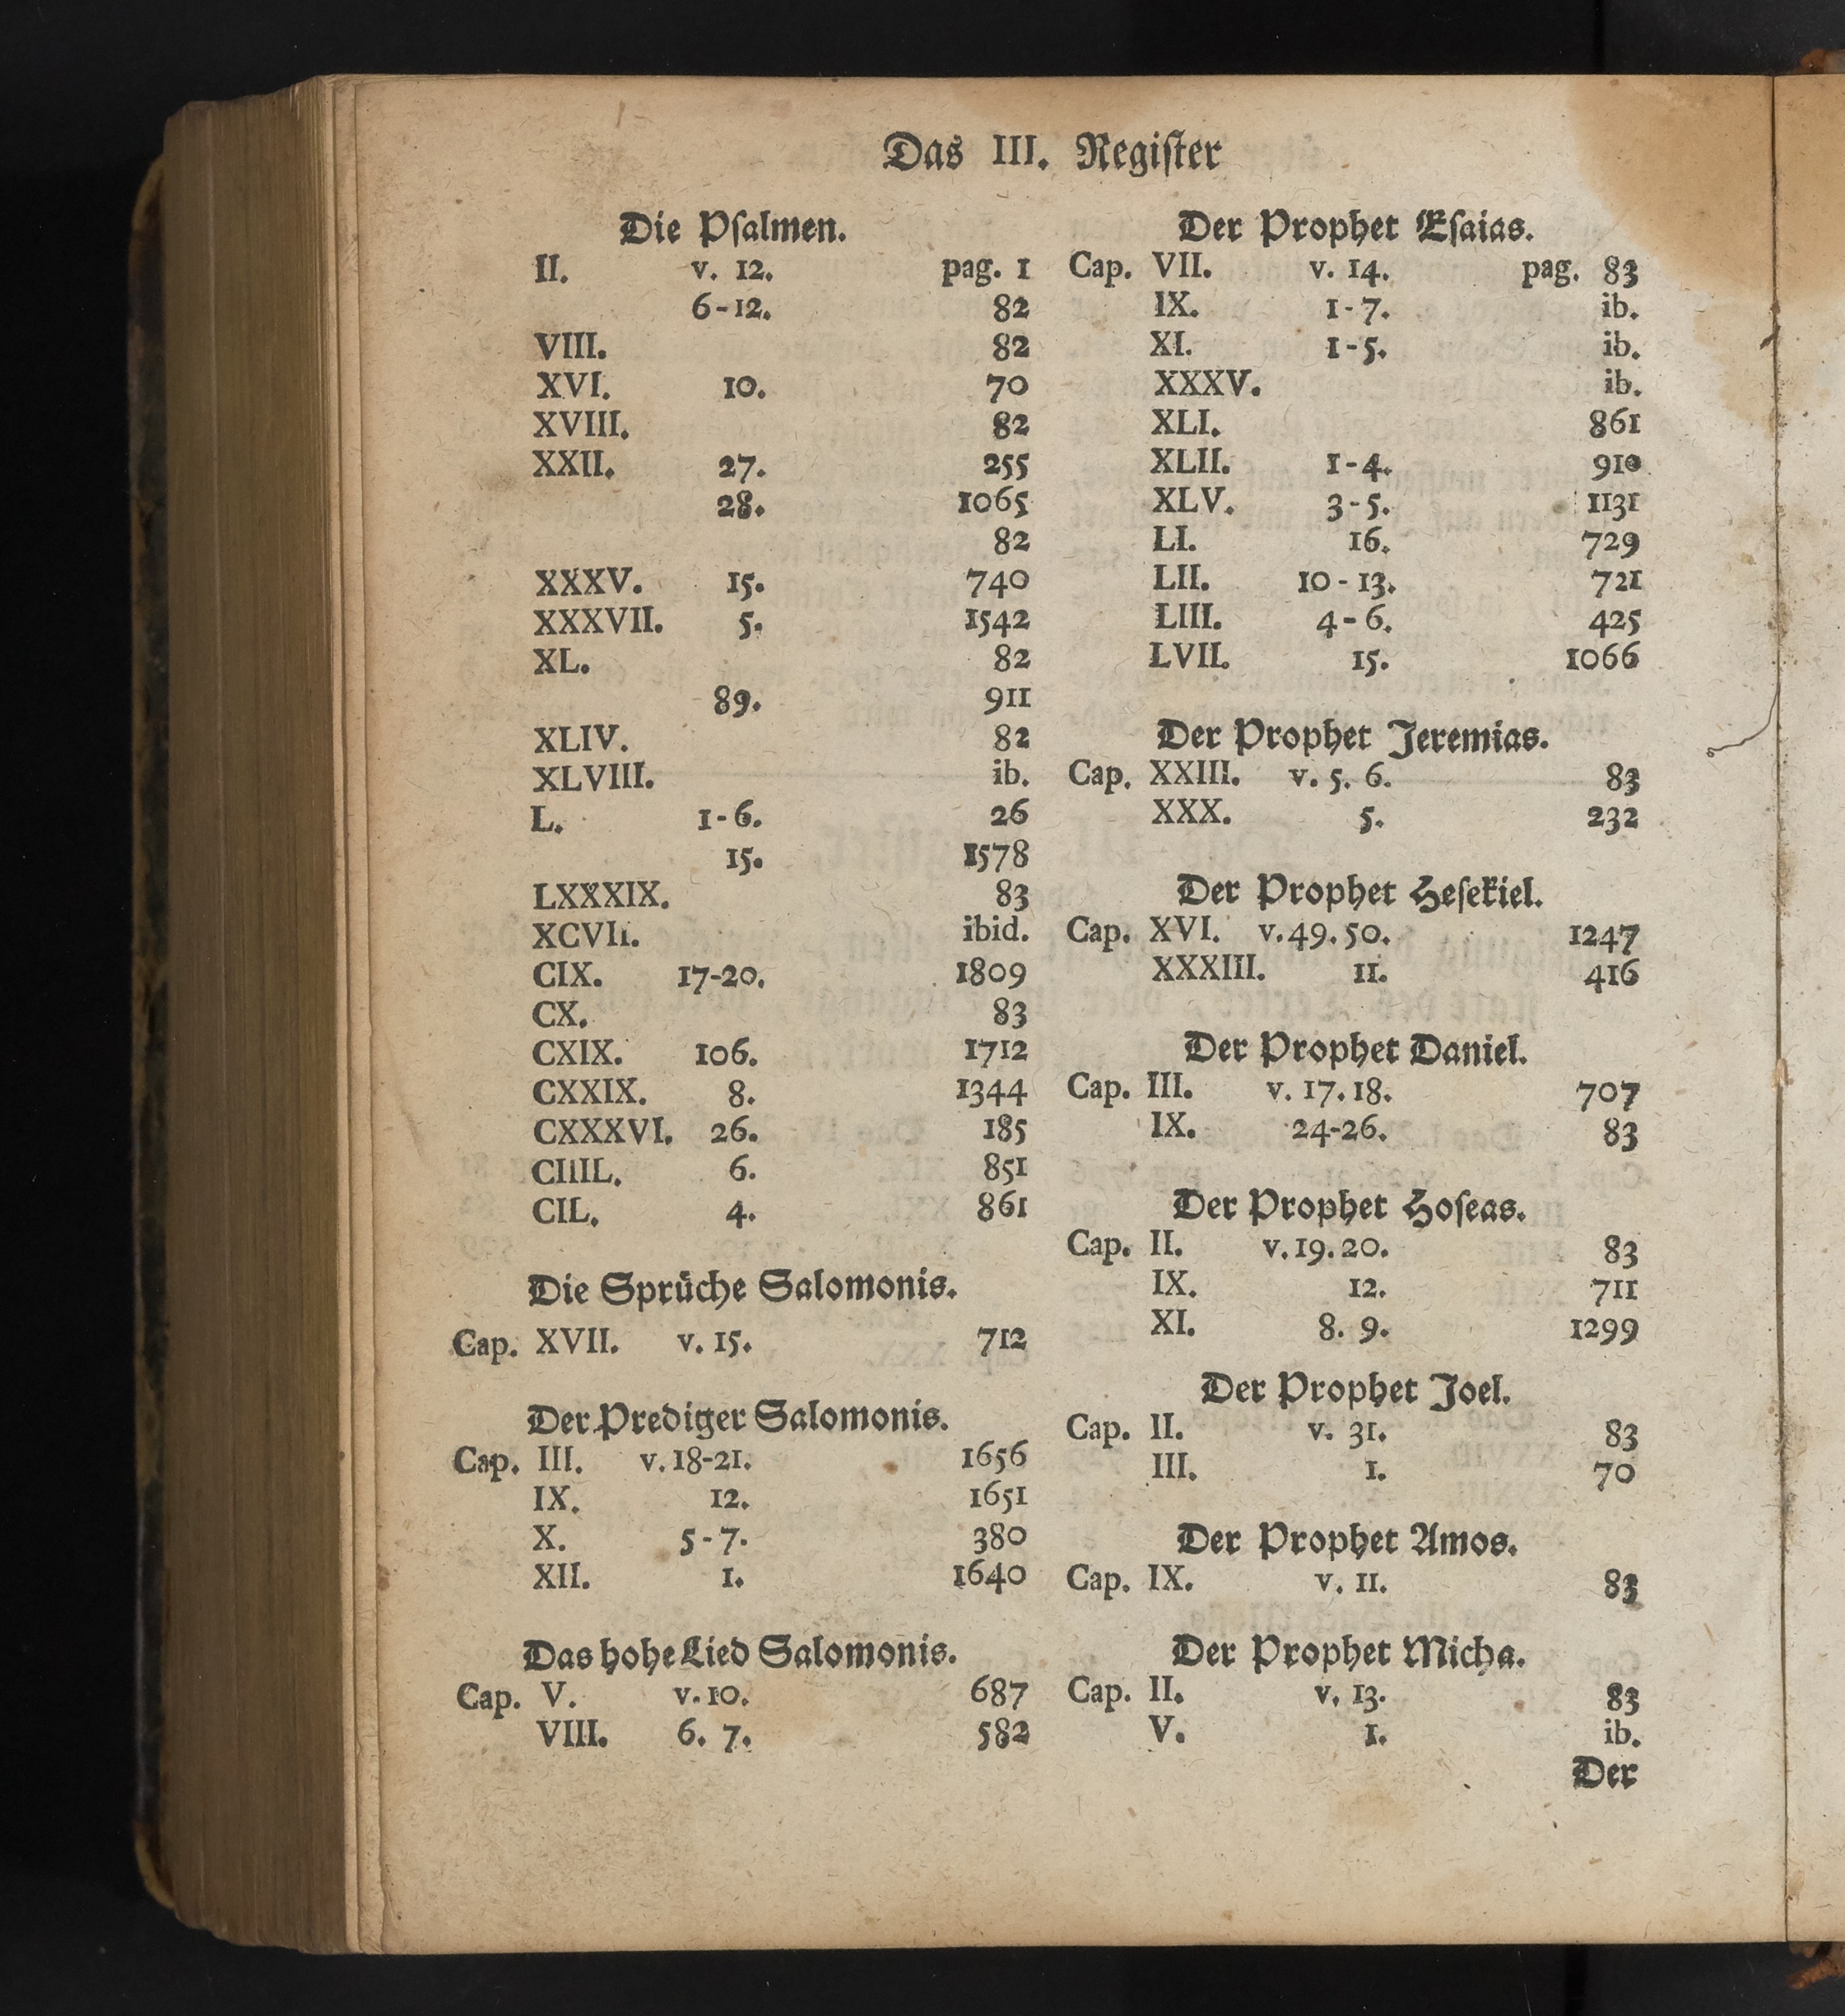 Das III. Regiſter
Die Pſalmen.
II. v. 12. pag. 1
6-12. 82
VIII. 82
XVI. 10. 70
XVIII. 82
XXII. 27. 255
28. 1065
82
XXXV. 15. 740
XXXVII. 5. 1542
XL. 82
89. 911
XLIV. 82
XLVIII. ib.
L. 1-6. 26
15. 1578
LXXXIX. 83
XCVII. ibid.
CIX. 17-20. 1809
CX. 83
CXIX. 106. 1712
CXXIX. 8. 1344
CXXXVI. 26. 185
CIIIL. 6. 851
CIL. 4. 861
Die Sprüche Salomonis.
Cap. XVII. v. 15. 712
Der Prediger Salomonis.
Cap. III. v. 18-21. 1656
IX. 12. 1651
X. 5-7. 380
XII. 1. 1640
Das hohe Lied Salomonis.
Cap. V. v. 10. 687
VIII. 6. 7. 582
Der Prophet Eſaias.
Cap. VII. v. 14. pag. 83
IX. 1-7. ib.
XI. 1-5. ib.
XXXV. ib.
XLI. 861
XLII. 1-4. 910
XLV. 3-5. 1131
LI. 16. 729
LII. 10-13. 721
LIII. 4-6. 425
LVII. 15. 1066
Der Prophet Jeremias.
Cap. XXIII. v. 5. 6. 83
XXX. 5. 232
Der Prophet Heſekiel.
Cap. XVI. v. 49. 50. 1247
XXXIII. 11. 416
Der Prophet Daniel.
Cap. III. v. 17. 18. 707
IX. 24-26. 83
Der Prophet Hoſeas.
Cap. II. v. 19. 20. 83
IX. 12. 711
XI. 8. 9. 1299
Der Prophet Joel.
Cap. II. v. 31. 83
III. 1. 70
Der Prophet Amos.
Cap. IX. v. 11. 83
Der Prophet Micha.
Cap. II. v. 13. 83
V. 1. ib.
Der